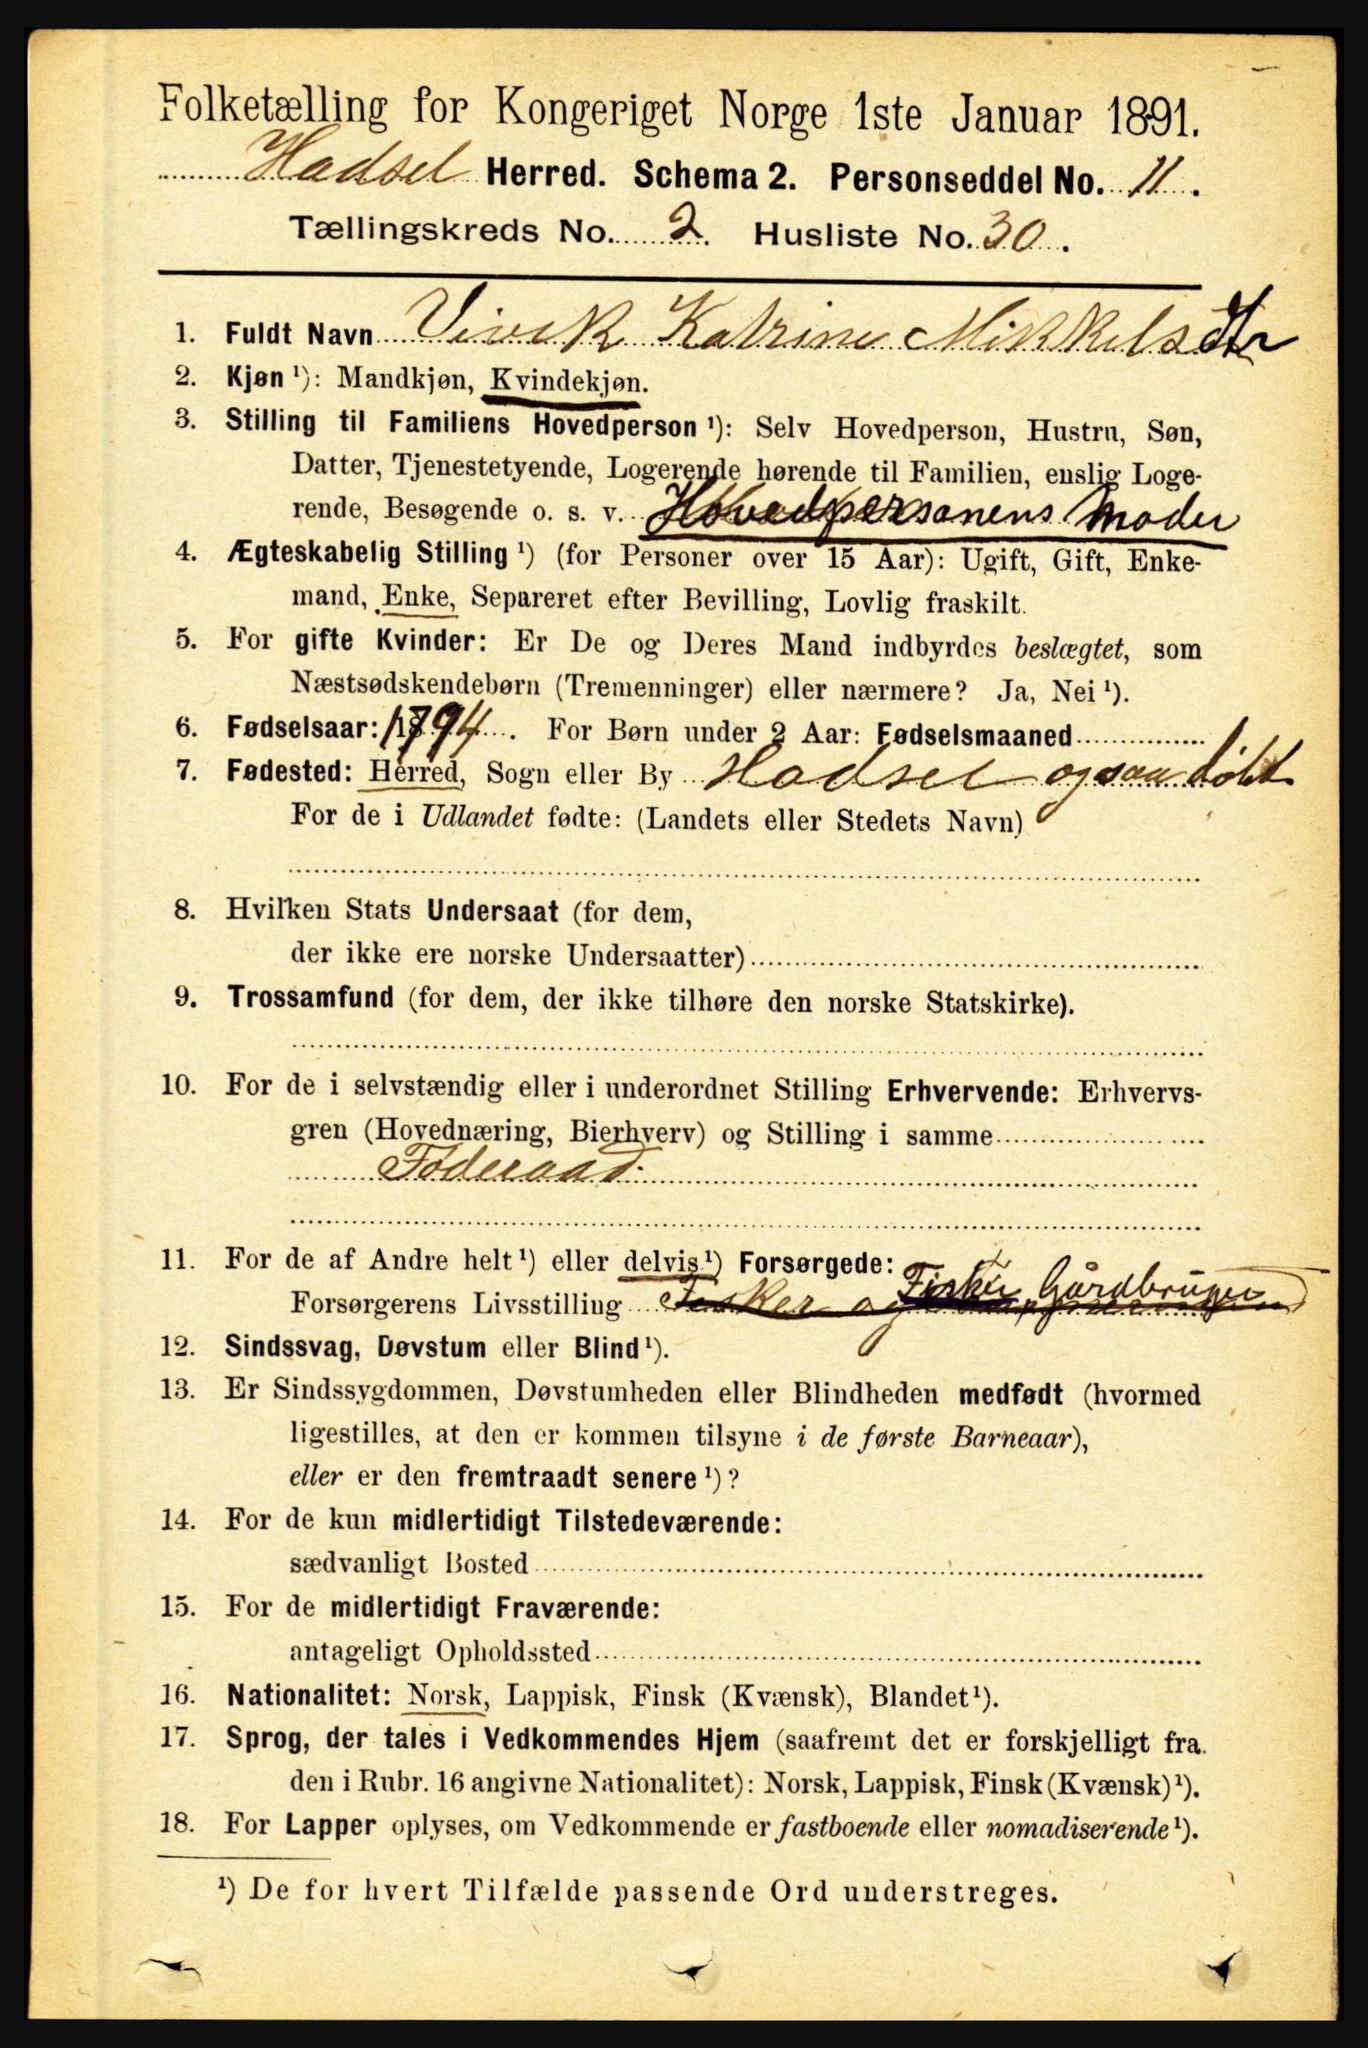 Folketælling for Kongeriget Norge 1ste Januar 1891.
Hadsel Herred. Schema 2. Personseddel No. 11.
Tællingskreds No. 2. Husliste No. 30.
1. Fuldt Navn Vivek Katrine Mikkelsdtr
2. Kjøn ¹): Mandkjøn, Kvindekjøn.
3. Stilling til Familiens Hovedperson ¹): Selv Hovedperson, Hustru, Søn,
Datter, Tjenestetyende, Logerende hørende til Familien, enslig Loge-
rende, Besøgende o. s. v. Hovedpersonens Moder
4. Ægteskabelig Stilling ¹) (for Personer over 15 Aar): Ugift, Gift, Enke-
mand, Enke, Separeret efter Bevilling, Lovlig fraskilt.
5. For gifte Kvinder: Er De og Deres Mand indbyrdes beslægtet, som
Næstsødskendebørn (Tremenninger) eller nærmere? Ja, Nei ¹).
6. Fødselsaar: 1794. For Børn under 2 Aar: Fødselsmaaned
7. Fødested: Herred, Sogn eller By Hadsel ogsaa døbt
For de i Udlandet fødte: (Landets eller Stedets Navn)
8. Hvilken Stats Undersaat (for dem,
der ikke ere norske Undersaatter)
9. Trossamfund (for dem, der ikke tilhøre den norske Statskirke).
10. For de i selvstændig eller i underordnet Stilling Erhvervende: Erhvervs-
gren (Hovednæring, Bierhverv) og Stilling i samme
Føderaad.
11. For de af Andre helt ¹) eller delvis ¹) Forsørgede:
Forsørgerens Livsstilling Fisker og Fisker, Gårdbruger
12. Sindssvag, Døvstum eller Blind ¹).
13. Er Sindssygdommen, Døvstumheden eller Blindheden medfødt (hvormed
ligestilles, at den er kommen tilsyne i de første Barneaar),
eller er den fremtraadt senere ¹)?
14. For de kun midlertidigt Tilstedeværende:
sædvanligt Bosted
15. For de midlertidigt Fraværende:
antageligt Opholdssted
16. Nationalitet: Norsk, Lappisk, Finsk (Kvænsk), Blandet ¹).
17. Sprog, der tales i Vedkommendes Hjem (saafremt det er forskjelligt fra
den i Rubr. 16 angivne Nationalitet): Norsk, Lappisk, Finsk (Kvænsk) ¹).
18. For Lapper oplyses, om Vedkommende er fastboende eller nomadiserende ¹).
¹) De for hvert Tilfælde passende Ord understreges.